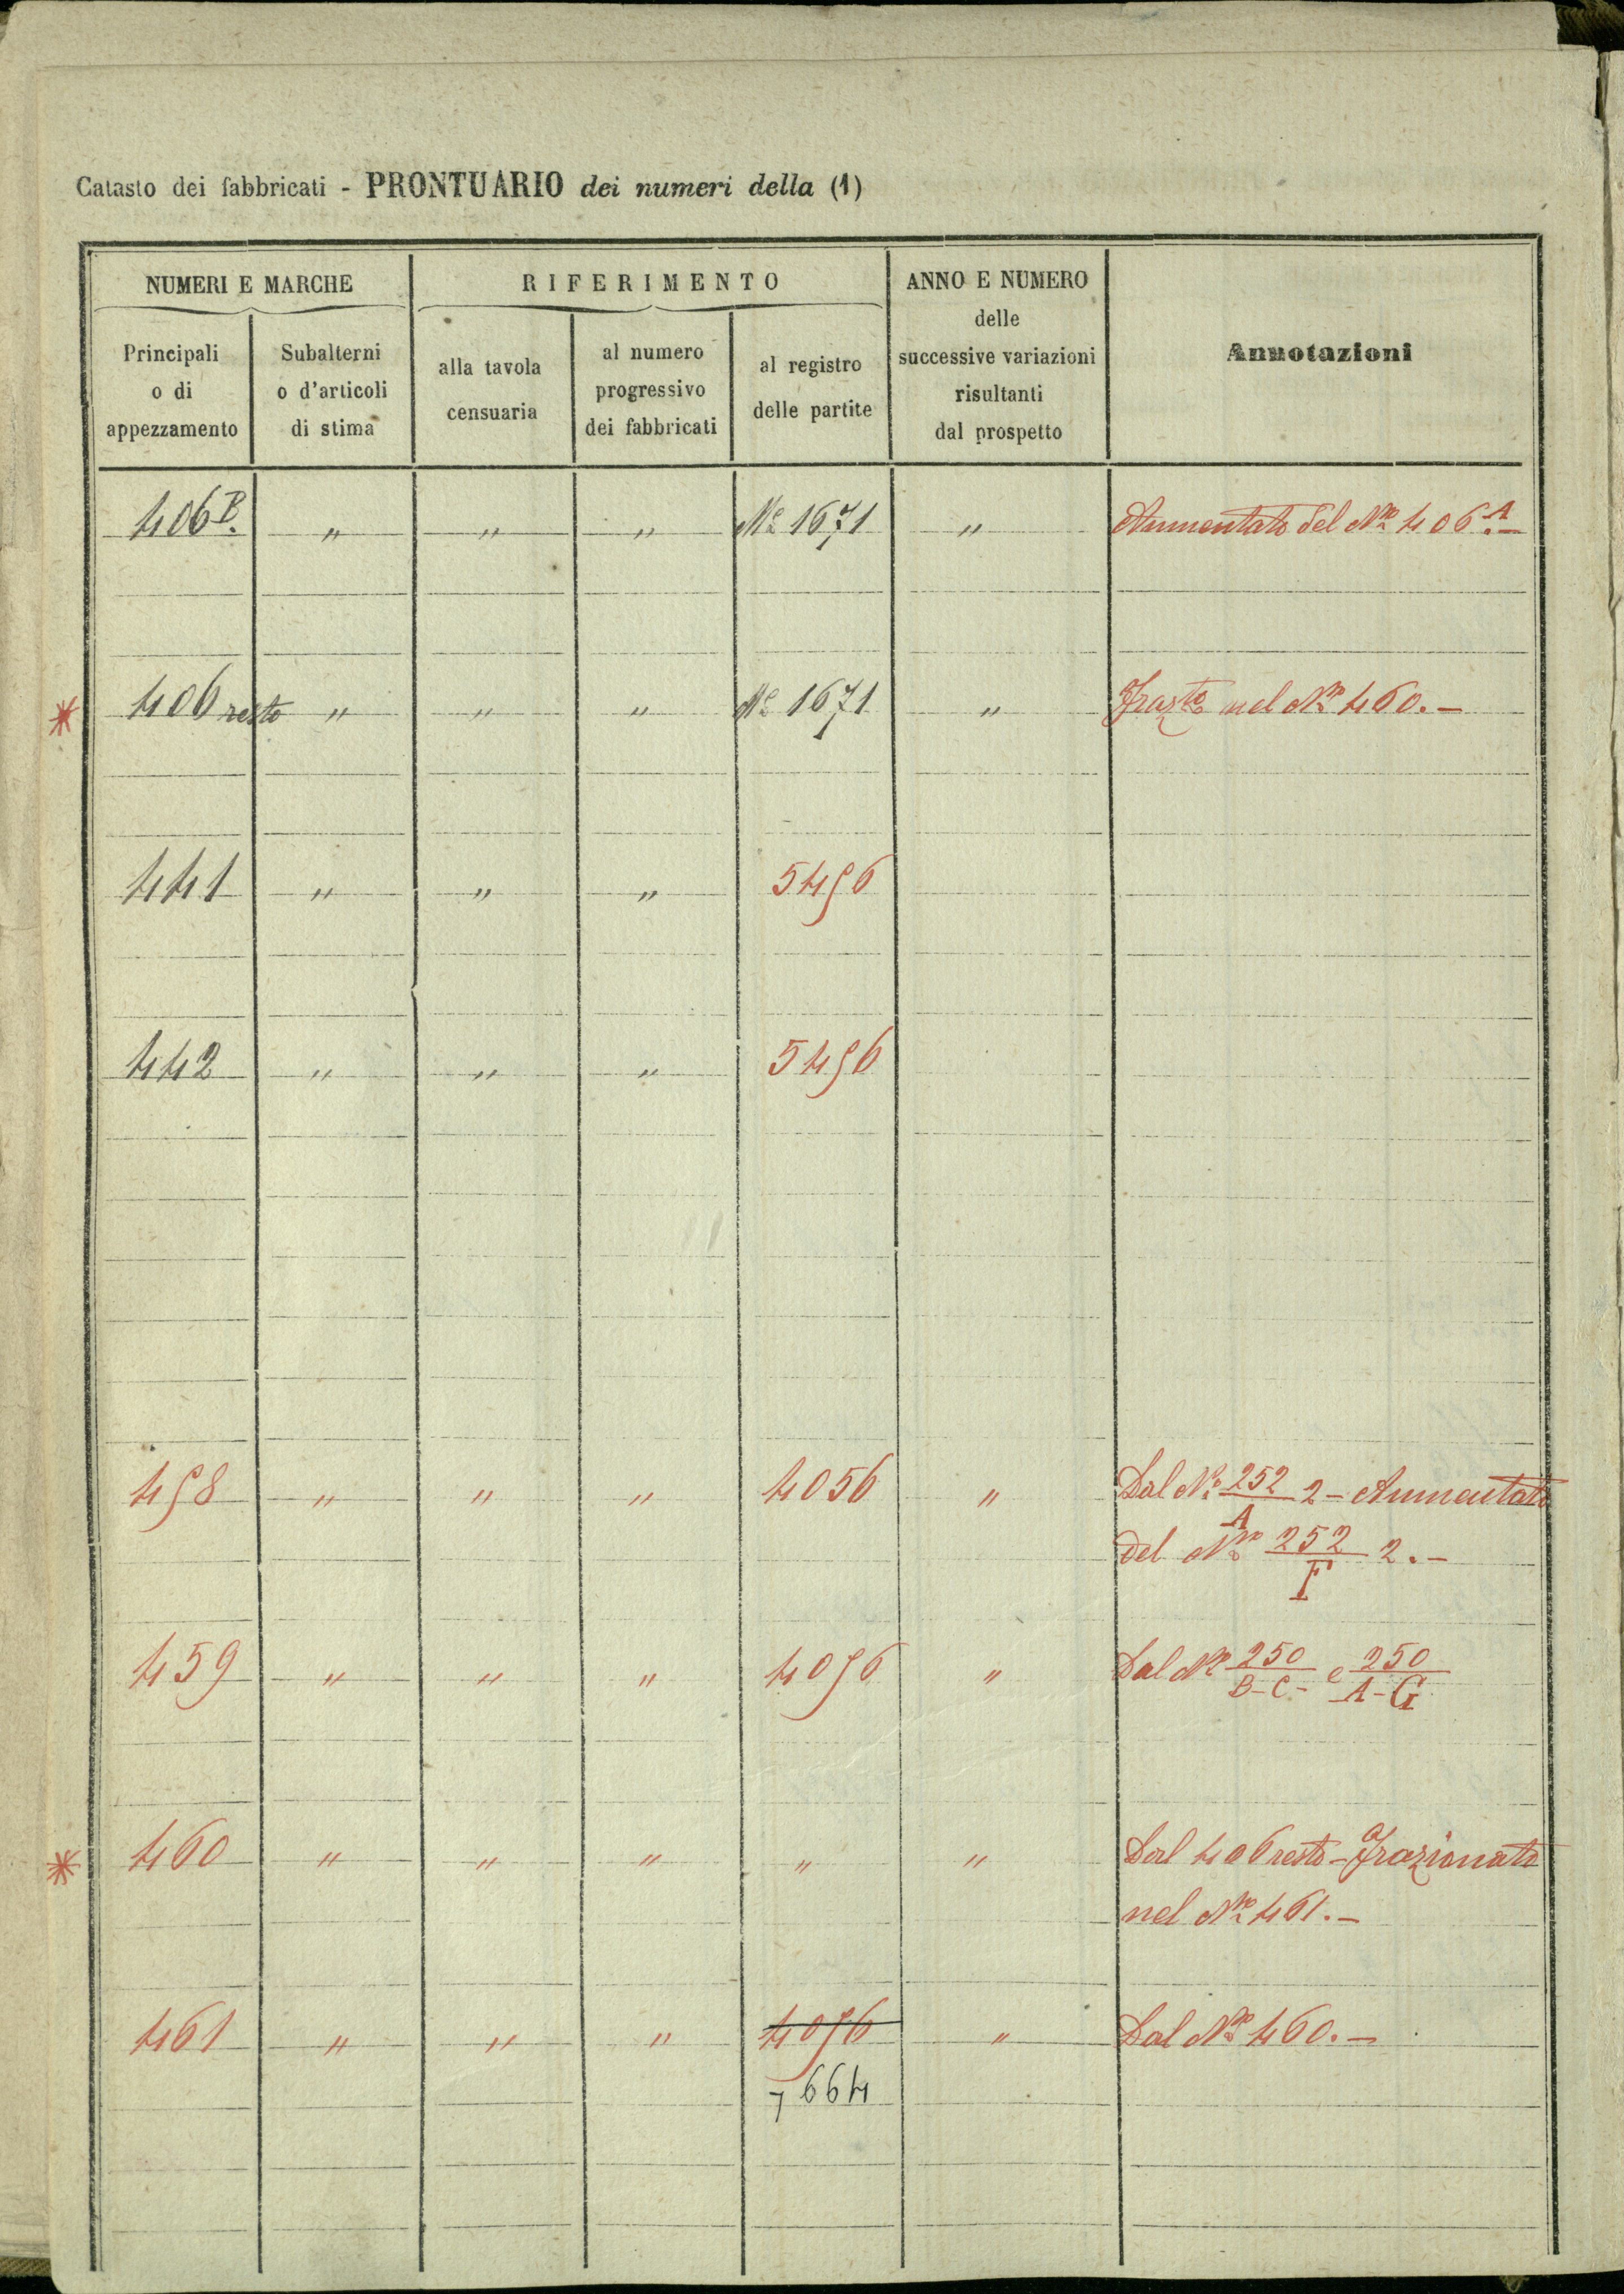 Catasto dei fabbricati - PRONTUARIO dei numeri della (1)
NUMERI E MARCHE
RIFERIMENTO
ANNO E NUMERO
delle
successive variazioni
risultanti
dal prospetto
Annotazioni
Principali
o di
appezzamento
Subalterni
o d'articoli
di stima
alla tavola
censuaria
al numero
progressivo
dei fabbricati
al registro
delle partite
406 B. " " " N° 1671 " Aumentato del N.ro 406 A. -
* 406 resto " " " N° 1671 " Frazto nel N.ro 460. -
441 " " " 5456
442 " " " 5456
458 " " " 4056 " Dal N° 252/A 2 - Aumentato
del N.ro 252/F 2. -
459 " " " 4056 " Dal N° 250/B-C- e 250/A-G
* 460 " " " " " Dal 406 resto - Frazionato
nel N.ro 461. -
461 " " " 4056 " Dal N.ro 460. -
7664